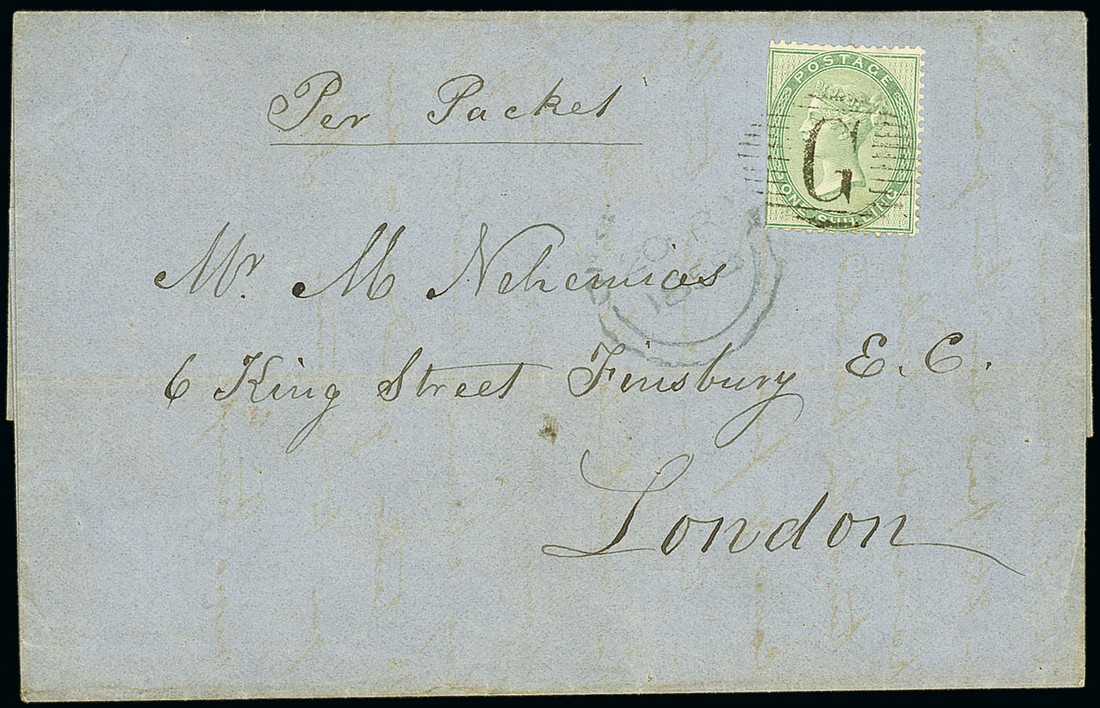 Per Packet
POSTAGE
G
ONE SHILLING
Mr. M Nehemias
6 King Street Finsbury E. C.
London